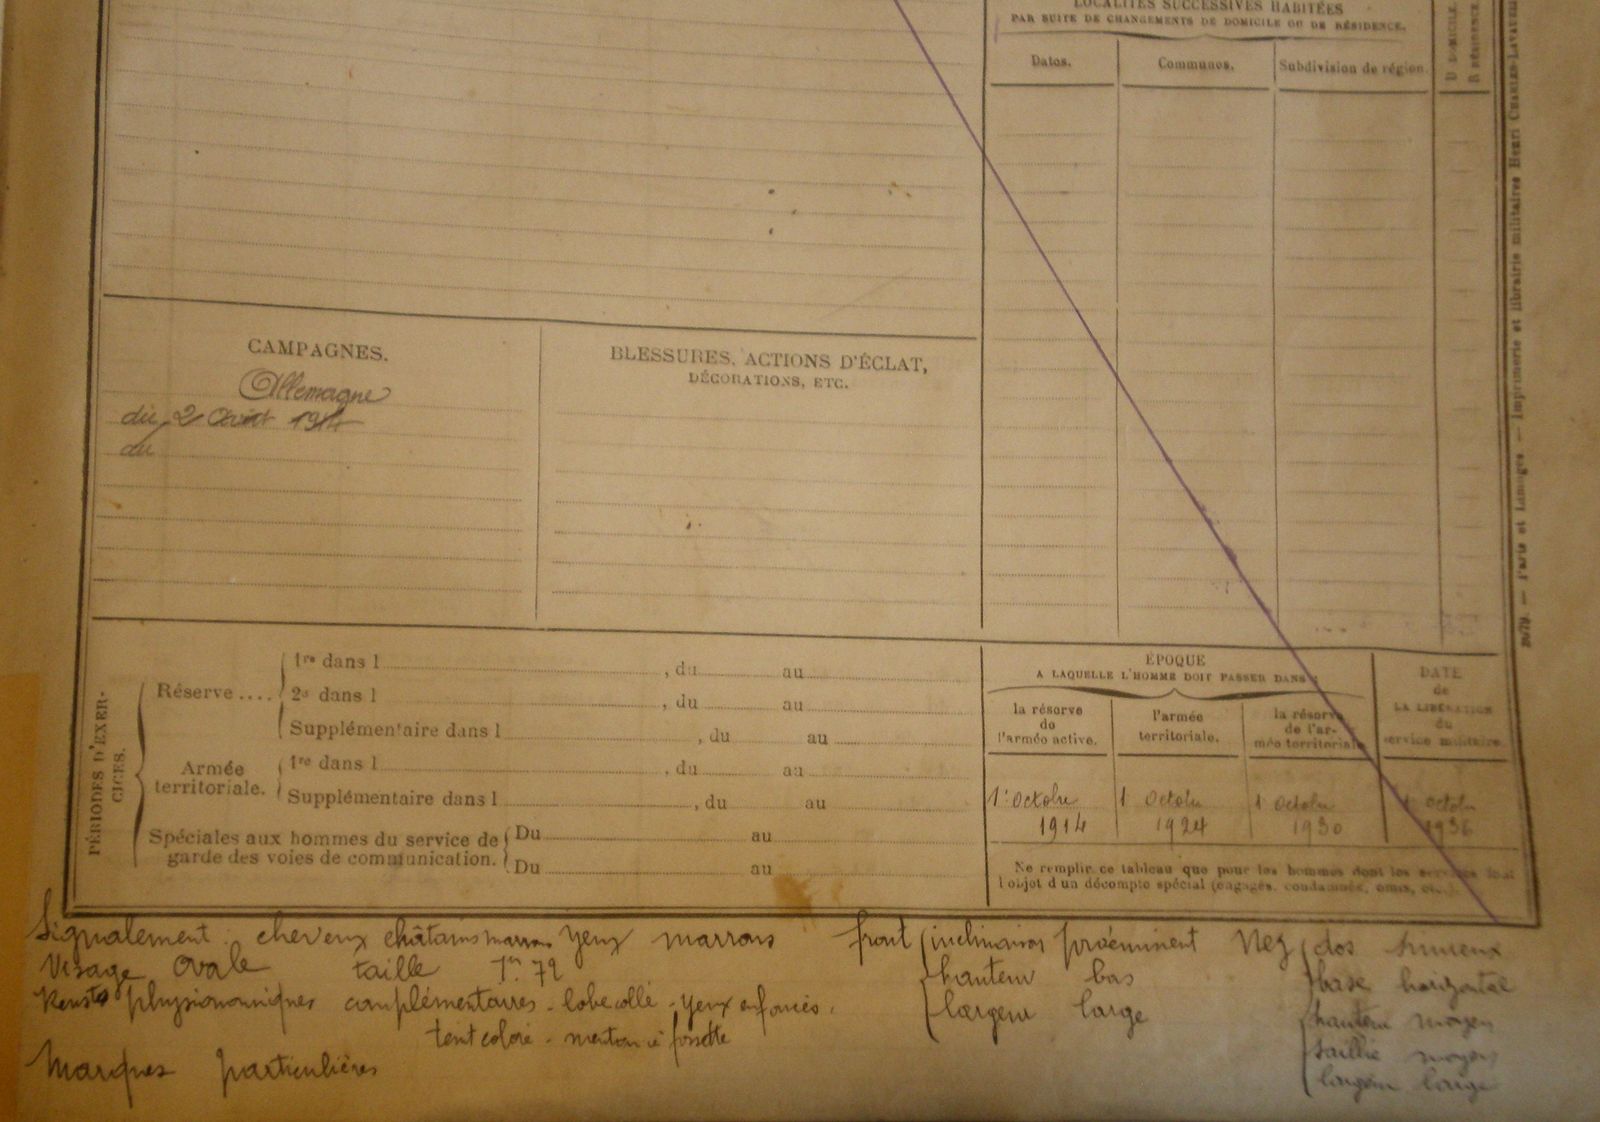 LOCALITÉS SUCCESSIVES HABITÉES
PAR SUITE DE CHANGEMENTS DE DOMICILE OU DE RÉSIDENCE.
Dates.
Communes.
Subdivision de région.
D DOMICILE.
R RÉSIDENCE
CAMPAGNES.
Allemagne
du 2 Août 1914
au
BLESSURES, ACTIONS D'ÉCLAT,
DÉCORATIONS, ETC.
PÉRIODES D'EXER-
CICES.
Réserve....
1re dans l , du au
2e dans l , du au
Supplémentaire dans l , du au
Armée
territoriale.
1re dans l , du au
Supplémentaire dans l , du au
Spéciales aux hommes du service de
garde des voies de communication.
Du au
Du au
ÉPOQUE
A LAQUELLE L'HOMME DOIT PASSER DANS :
la réserve
de
l'armée active.
l'armée
territoriale.
la réserve
de l'ar-
mée territoriale
DATE
de
LA LIBÉRATION
du
service militaire.
1er Octobre
1914
1 Octobre
1924
1 Octobre
1930
1 Octobre
1936
Ne remplir ce tableau que pour les hommes dont les services font
l'objet d'un décompte spécial (engagés, condamnés, omis, etc.).
Imprimerie et librairie militaires Henri CHARLES-LAVAUZELLE
Paris et Limoges.
Signalement : cheveux châtains marrons yeux marrons
front inclinaison proéminent
hauteur bas
largeur large
Nez dos sinueux
base horizontal
hauteur moyen
saillie moyen
largeur large
Visage ovale taille 1m 72
Renst physionomiques complémentaires - lobe collé - yeux enfoncés,
teint coloré - menton à fossette
Marques particulières